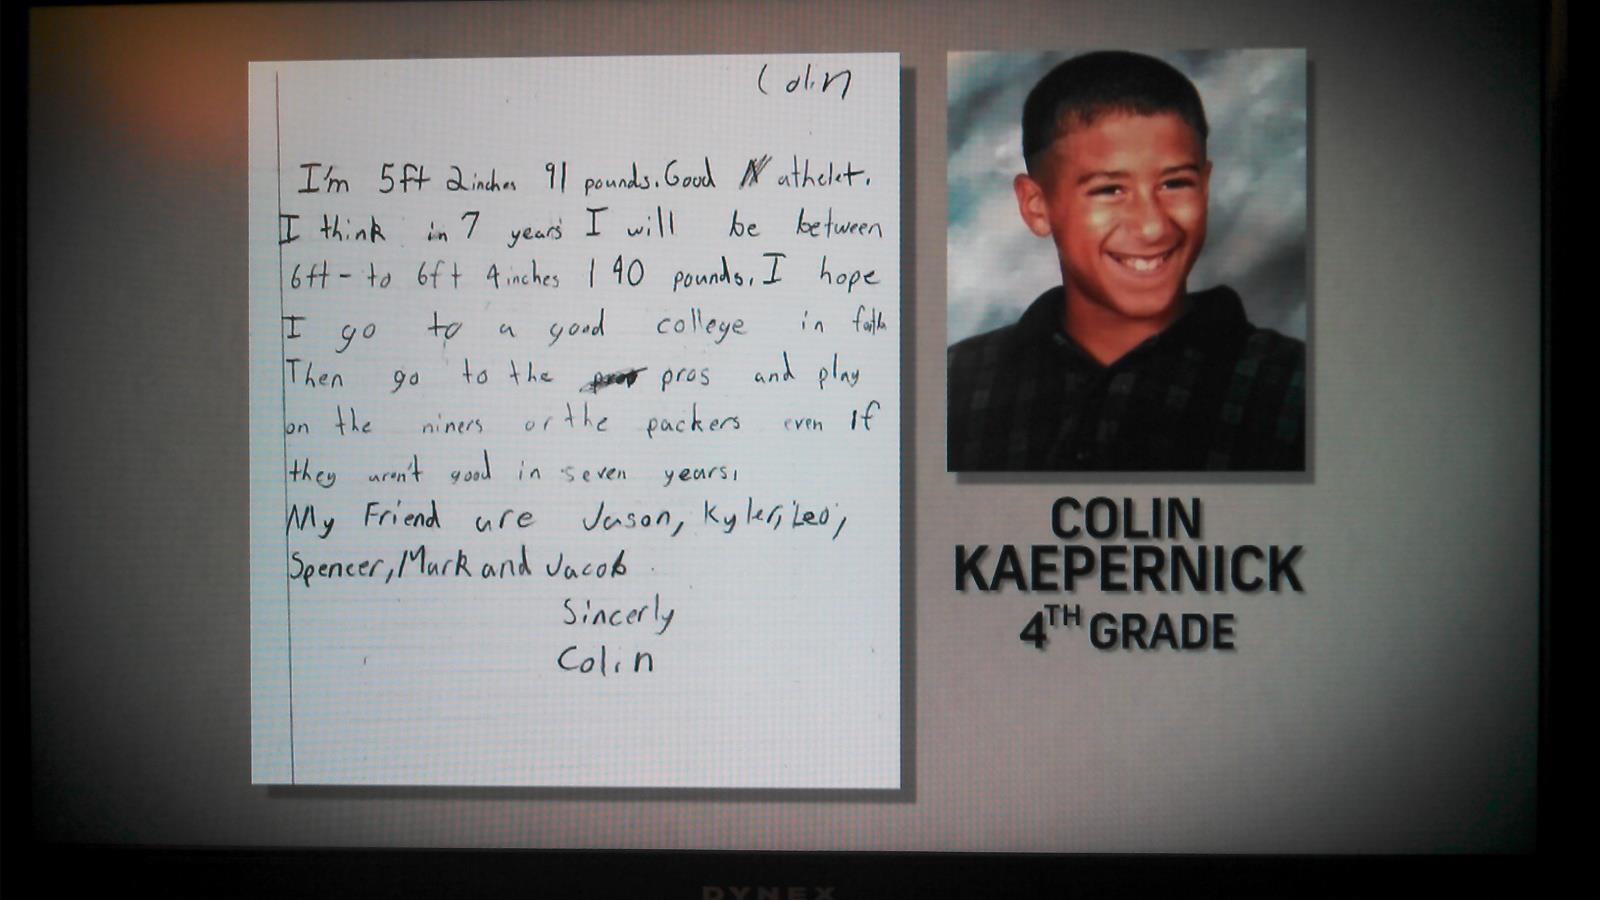 Colin
I'm 5ft 2inches 91 pounds. Good athelet.
I think in 7 years I will be between
6ft - to 6ft 4inches 140 pounds. I hope
I go to a good college in
Then go to the pros and play
on the niners or the packers even if
they aren't good in seven years.
My Friend are Jason, Kyler, Leo,
Spencer, Mark and Jacob
Sincerly
Colin
COLIN
KAEPERNICK
4TH GRADE
DYNEX